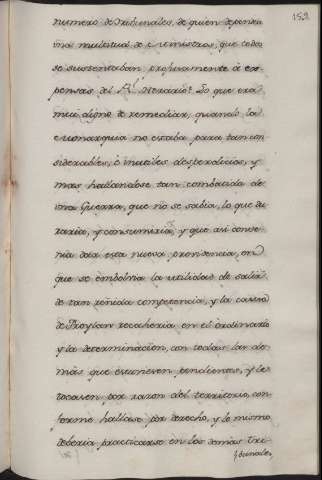 152
numero de Tribunales, de quien dependia
una multitud de Ministros, que todos
se sustentaban profusamente à ex-
pensas del Rl. Herario: Lo que era
mui digno de remediar, quando la
Monarquia no estaba para tan con-
siderables, è inutiles desperdicios, y
mas hallandose tan combatida de
una Guerra, que no se sabia, lo que du-
raria, y consumiria, y que asi conve-
nia dar esta nueva providencia, en
que se embolvia la utilidad de salir
de tan reñida competencia, y la causa
de Froylan recaheria en el ordinario
y la determinacion, con todas las de-
màs que estuviesen pendientes, y le
tocasen por razon del territorio, con-
forme hallase por derecho, y lo mismo
deberia practicarse en los demas Tri-
bunales,